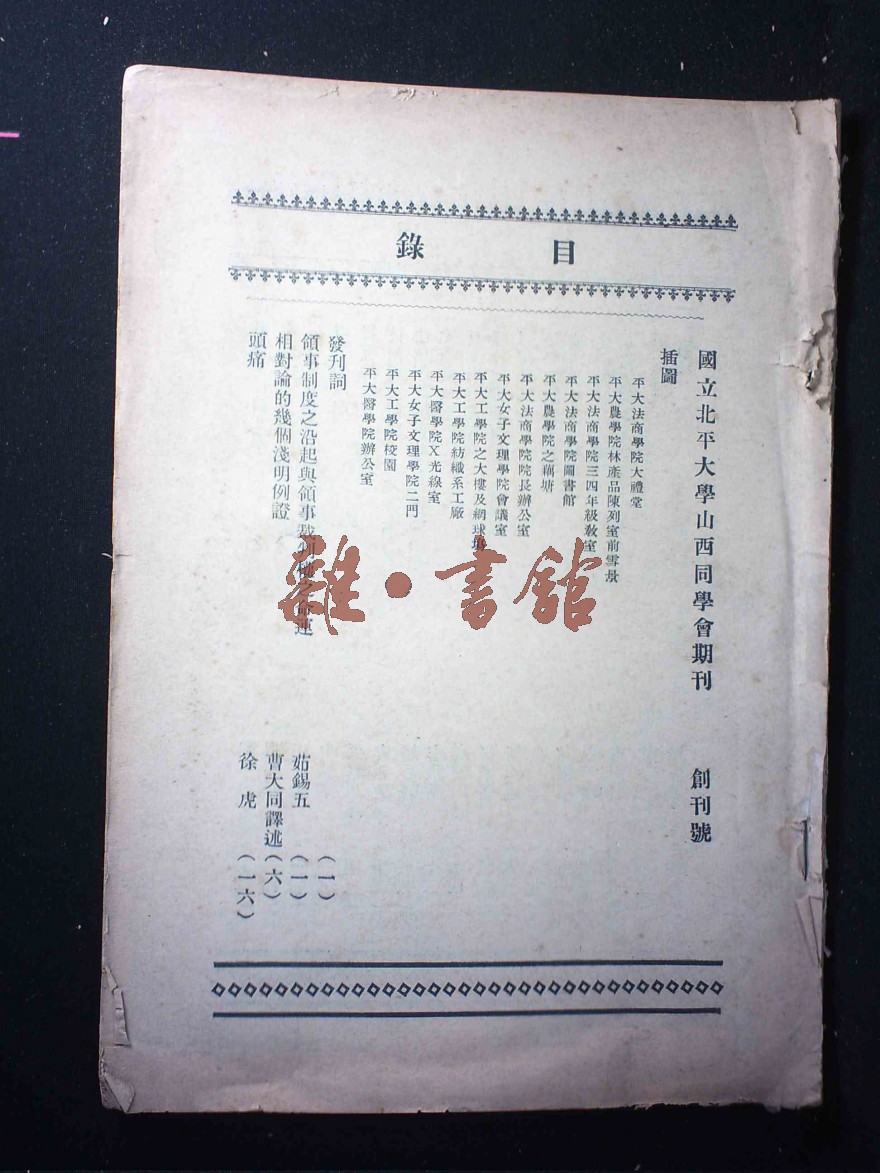 目錄
國立北平大學山西同學會期刊 創刊號
插圖
平大法商學院大禮堂
平大農學院林產品陳列室前雪景
平大法商學院三四年級教室
平大法商學院圖書館
平大農學院之藕塘
平大法商學院院長辦公室
平大女子文理學院會議室
平大工學院之大樓及網球場
平大工學院紡織系工廠
平大醫學院X光線室
平大女子文理學院二門
平大工學院校園
平大醫學院辦公室
發刊詞 (一)
領事制度之沿起與領事裁判權之命運 茹錫五 (一)
相對論的幾個淺明例證 曹大同譯述 (六)
頭痛 徐虎 (一六)
雜·書館